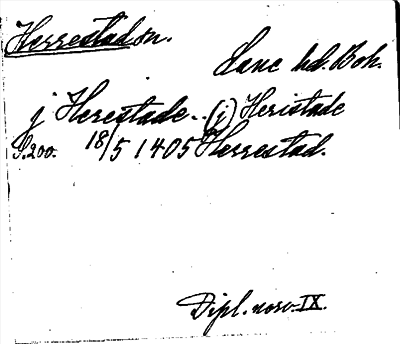 Herrestad sn.
Lane hd. Boh.
j Herestade.. (j) Heristade
S. 200. 18/5 1405 Herrestad.
Dipl. norv. IX.